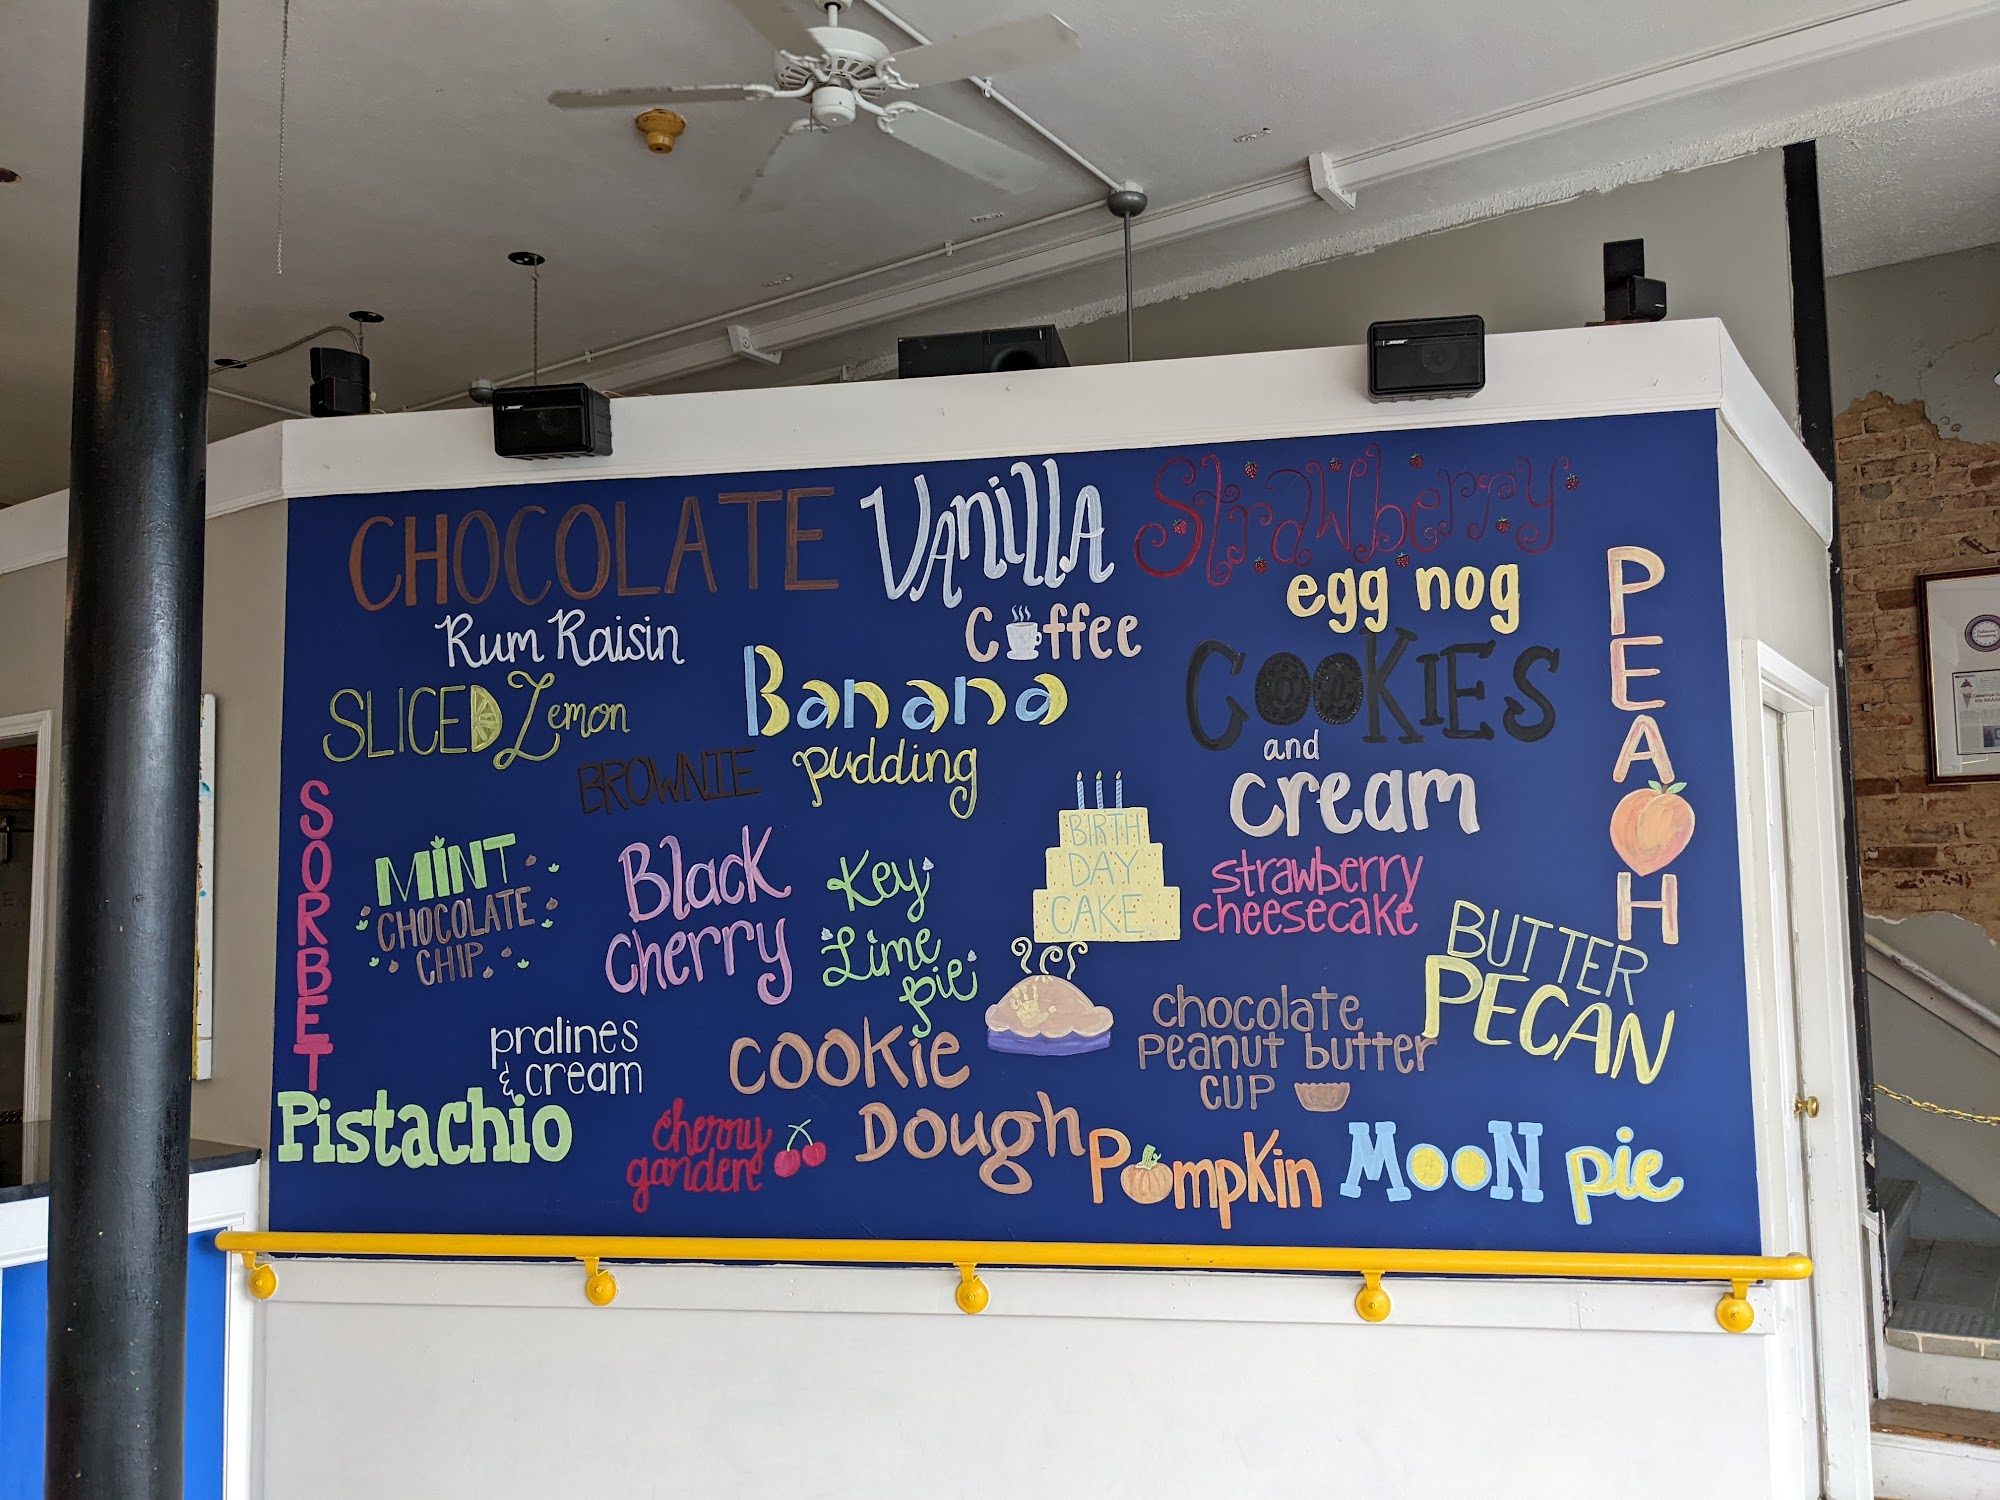 CHOCOLATE
Vanilla
Strawberry
egg nog
PEACH
Rum Raisin
Coffee
SLICED Lemon
Banana
pudding
COOKIES
and
cream
BROWNIE
SORBET
MINT
CHOCOLATE
CHIP
Black
Cherry
Key
Lime
pie
BIRTH
DAY
CAKE
strawberry
cheesecake
BUTTER
PECAN
pralines
& cream
cookie
Dough
chocolate
peanut butter
cup
Pistachio
cherry
gardene
Pumpkin
MOON pie